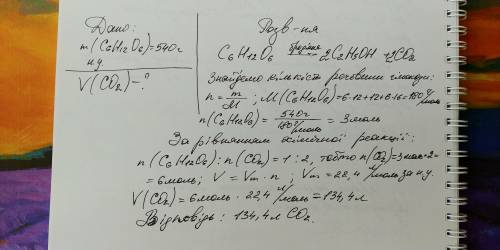 Дано:
m(C6H12O6)=540г
н.у
V(CO2)-?
Розв-ня
C6H12O6 бродіння→ 2C2H5OH+2CO2
Знайдемо кількість речовини глюкози:
n = m/M ; M(C6H12O6)=6·12+12+6·16=180 г/моль
n(C6H12O6) = 540г / 180 г/моль = 3моль
За рівнянням хімічної реакції:
n(C6H12O6):n(CO2)=1:2, тобто n(CO2)=3моль·2=
=6моль; V = Vm · n; Vm=22,4 л/моль за н.у.
V(CO2)=6моль · 22,4 л/моль=134,4л
Відповідь: 134,4л CO2.